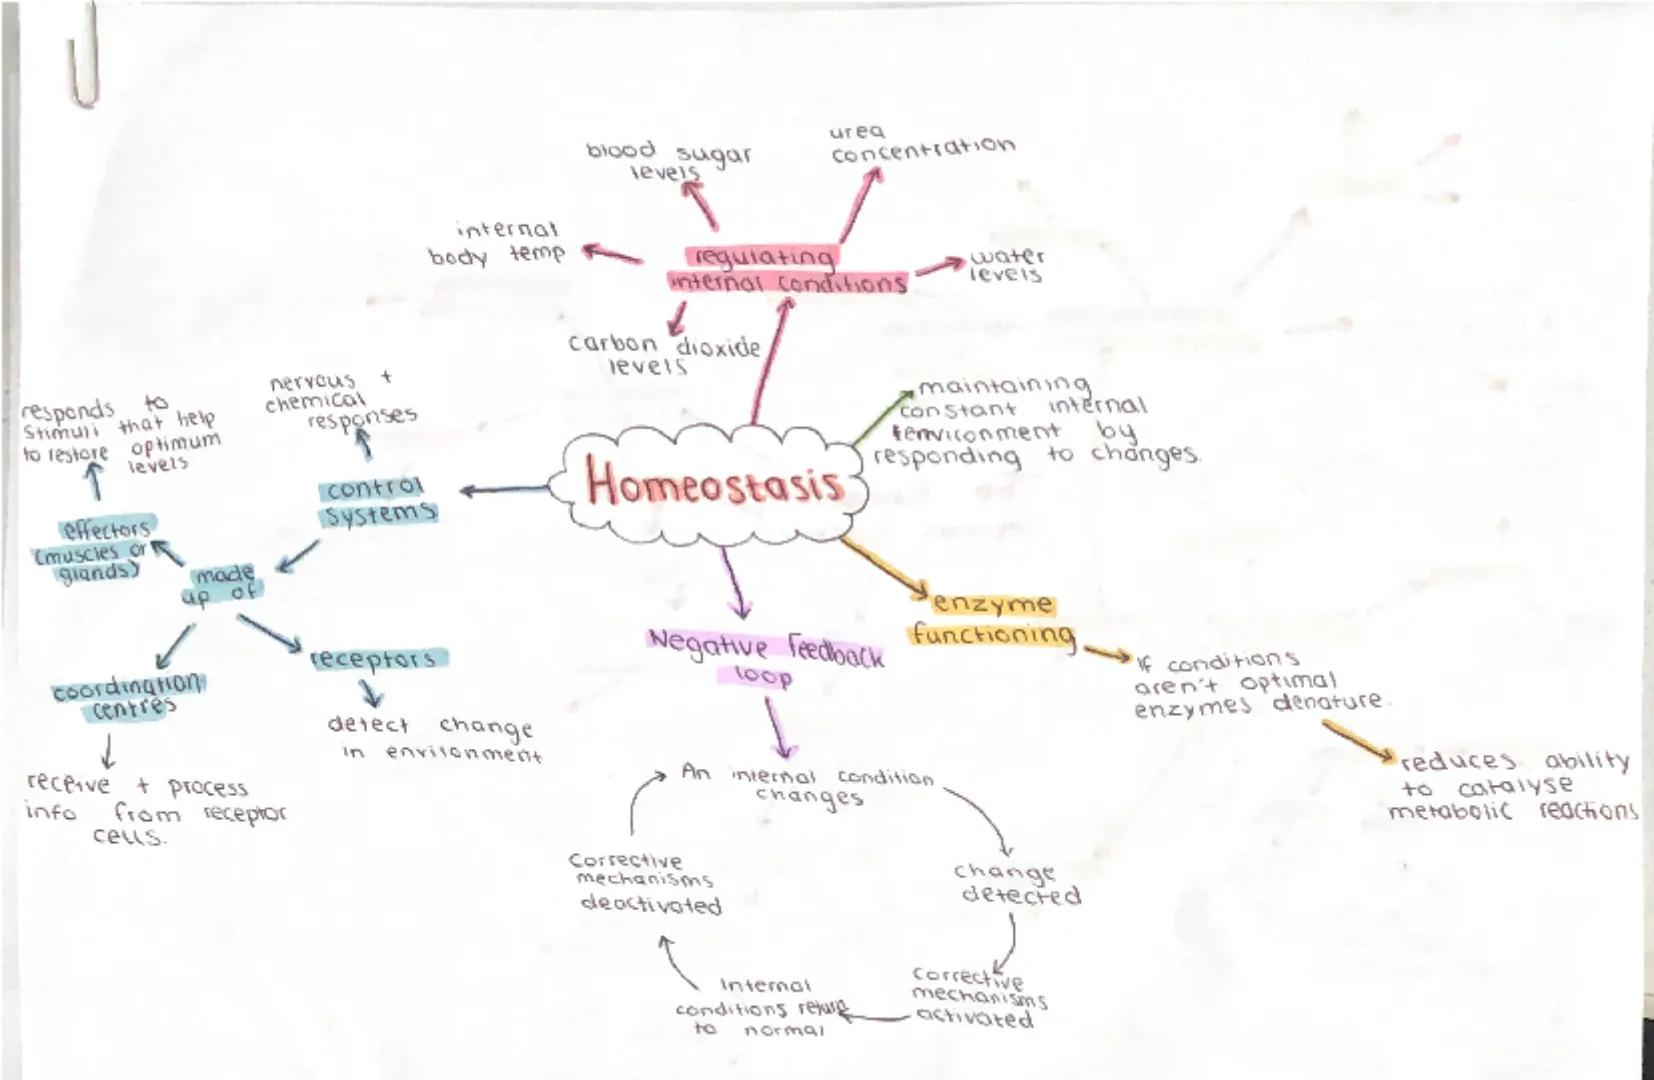 blood sugar
levels
urea
concentration
internal
body temp
regulating
internal conditions
water
levels
carbon dioxide
levels
maintaining
constant internal
environment by
responding to changes.
Homeostasis
nervous +
chemical
responses
responds to
stimuli that help
to restore optimum
levels
control
systems
effectors
(muscles or
glands)
made
up of
receptors
coordination
centres
detect change
in environment
receive + process
info from receptor
cells.
enzyme
functioning
If conditions
aren't optimal
enzymes denature.
reduces ability
to catalyse
metabolic reactions
Negative feedback
loop
An internal condition
changes
change
detected
corrective
mechanisms
activated
Internal
conditions return
to normal
Corrective
mechanisms
deactivated